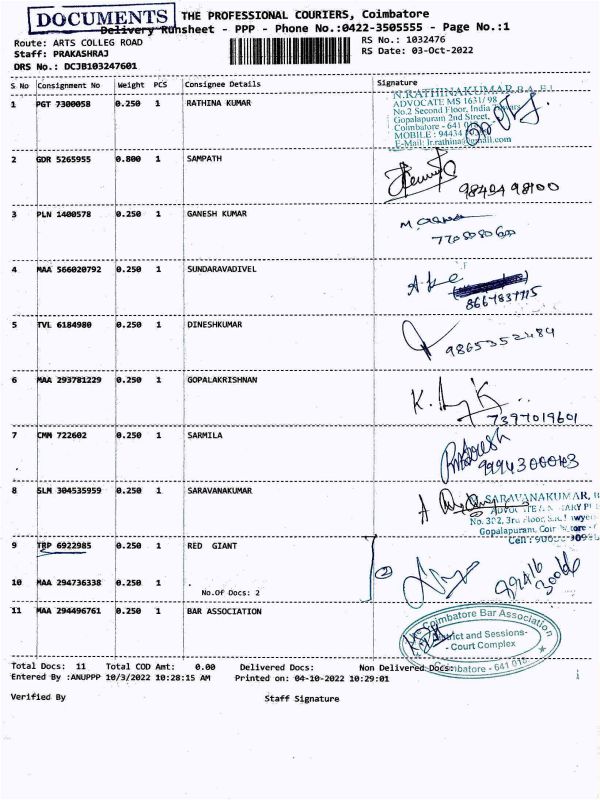 DOCUMENTS THE PROFESSIONAL COURIERS, Coimbatore
Delivery Runsheet - PPP - Phone No.:0422-3505555 - Page No.:1
Route: ARTS COLLEG ROAD
RS No.: 1032476
Staff: PRAKASHRAJ
RS Date: 03-Oct-2022
DRS No.: DCJB103247601
S No Consignment No Weight PCS Consignee Details Signature
1 PGT 7300058 0.250 1 RATHINA KUMAR
N.RATHINAKUMAR.B.A.,B.L
ADVOCATE MS 1631/98
No.2 Second Floor, India Towers
Gopalapuram 2nd Street,
Coimbatore - 641 018
MOBILE : 94434
E-Mail: lr.rathina@gmail.com
2 GDR 5265955 0.800 1 SAMPATH
98404 98100
3 PLN 1400578 0.250 1 GANESH KUMAR
4 MAA 566020792 0.250 1 SUNDARAVADIVEL
8667837715
5 TVL 6184980 0.250 1 DINESHKUMAR
9865352484
6 MAA 293781229 0.250 1 GOPALAKRISHNAN
7397019601
7 CMM 722602 0.250 1 SARMILA
8 SLM 304535959 0.250 1 SARAVANAKUMAR
SARAVANAKUMAR,
No. 302, 3rd Floor,
Gopalapuram,
Cell :
9 TRP 6922985 0.250 1 RED GIANT
2
10 MAA 294736338 0.250 1
No.Of Docs: 2
11 MAA 294496761 0.250 1 BAR ASSOCIATION
Coimbatore Bar Association
District and Sessions-
- Court Complex
Coimbatore - 641 018
Total Docs: 11 Total COD Amt: 0.00 Delivered Docs: Non Delivered Docs:
Entered By :ANUPPP 10/3/2022 10:28:15 AM Printed on: 04-10-2022 10:29:01
1
Verified By Staff Signature